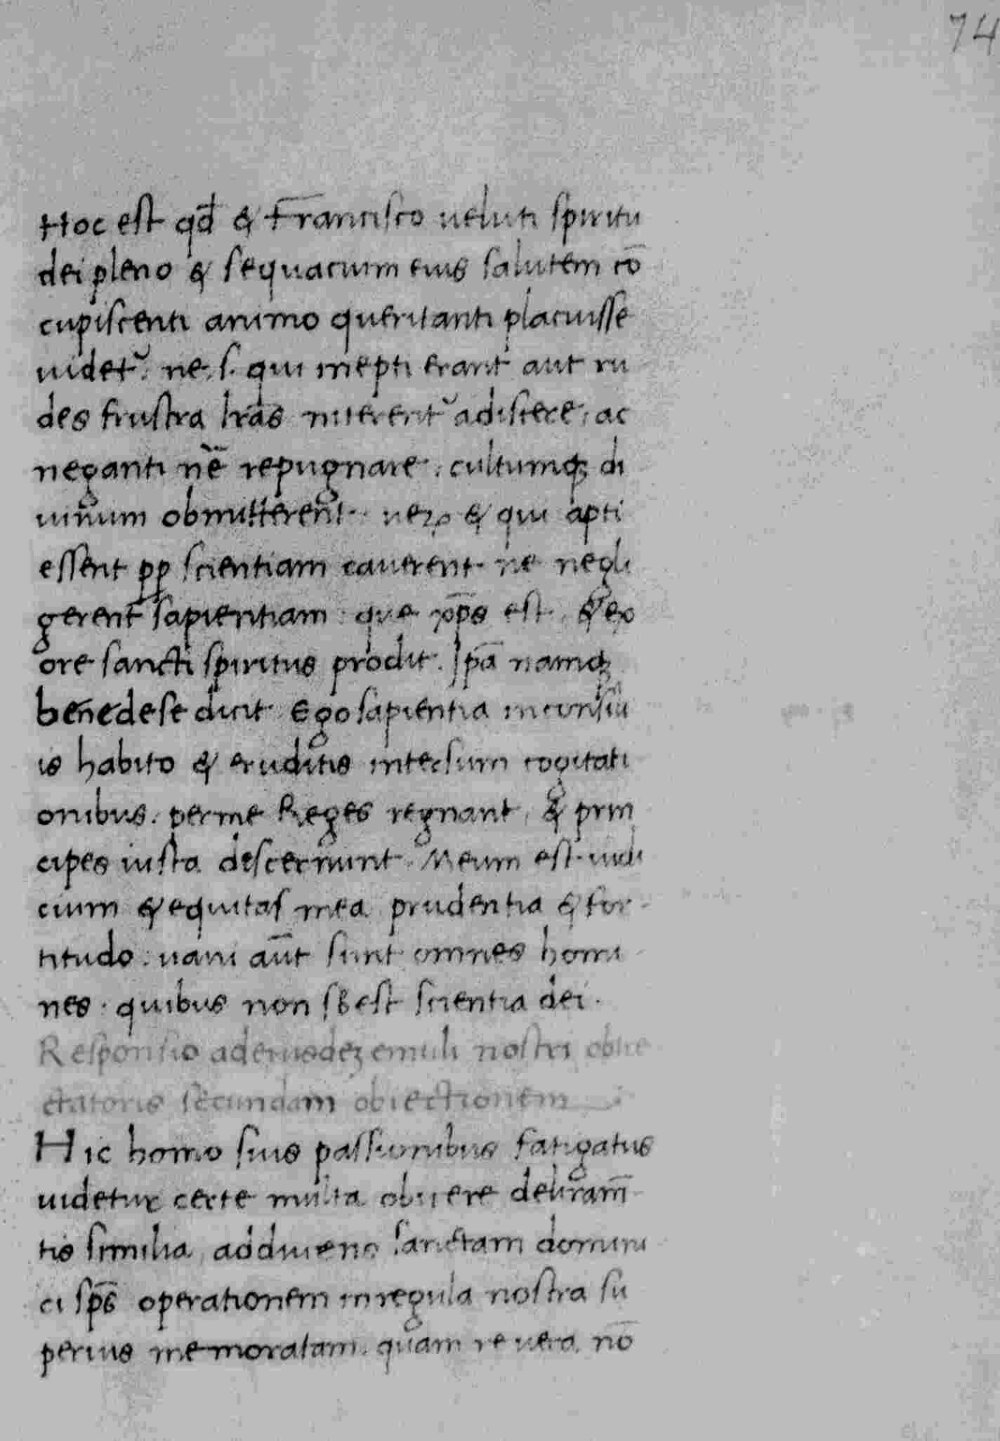 74
Hoc est qd̄ & Francisco ueluti spiritu
dei pleno & sequacium eius salutem cō
cupiscenti animo queritanti placuisse
uidet᷑. ne .s. qui inepti erant aut ru
des frustra lr̄as niterent᷑ adiscere, ac
neganti nē repugnare. cultumqꝫ di
uinum obmitterent. & qui apti
essent ꝓꝑ scientiam cauerent ne negli
gerent sapientiam que xp̄s est, & ex
ore sancti spiritus prodit. Ipā namqꝫ
bene de se dicit Ego sapientia in consili
is habito & eruditis intersum cogitati
onibus. per me Reges regnant, & prin
cipes iusta descernunt. Meum est iudi
cium & equitas mea prudentia & for
titudo. uani aūt sunt omnes homi
nes. quibus non sbest scientia dei.
Responsio ad eiusdeꝫ emuli nostri obtre
ctatoris secundam obiectionem
Hic homo suis passionibus fatigatus
uidetur certe multa obiicere deliram̄
tis similia adduens sanctam domini
ci sp̄s operationem in regula nostra su
perius memoratam. quam re uera nō